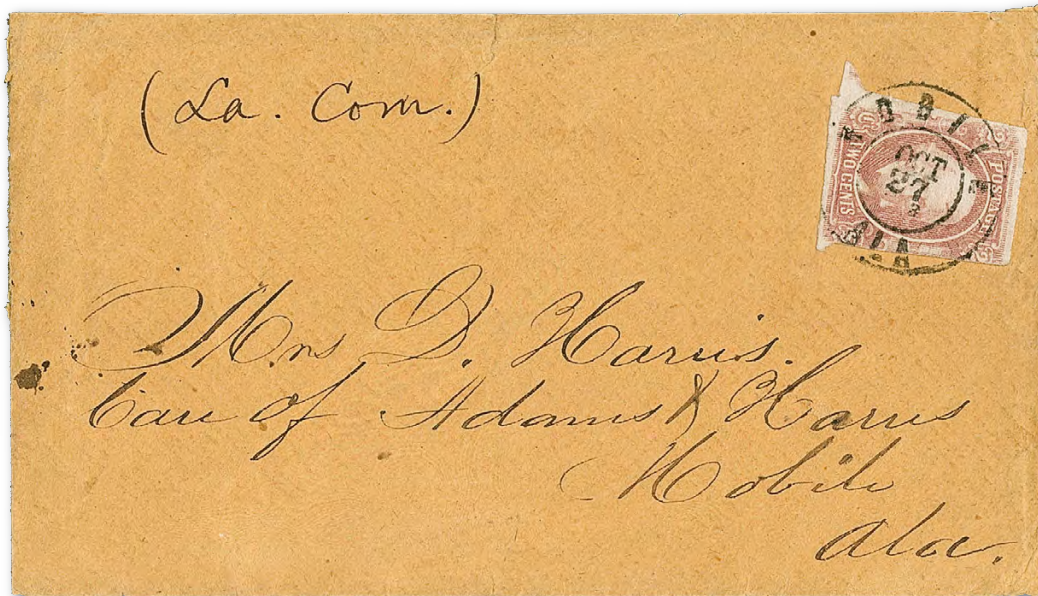 (La. Com.)
MOBILE
OCT
27
ALA
TWO CENTS
POSTAGE
Mrs D. Harris.
Care of Adams & Harris
Mobile
Ala.